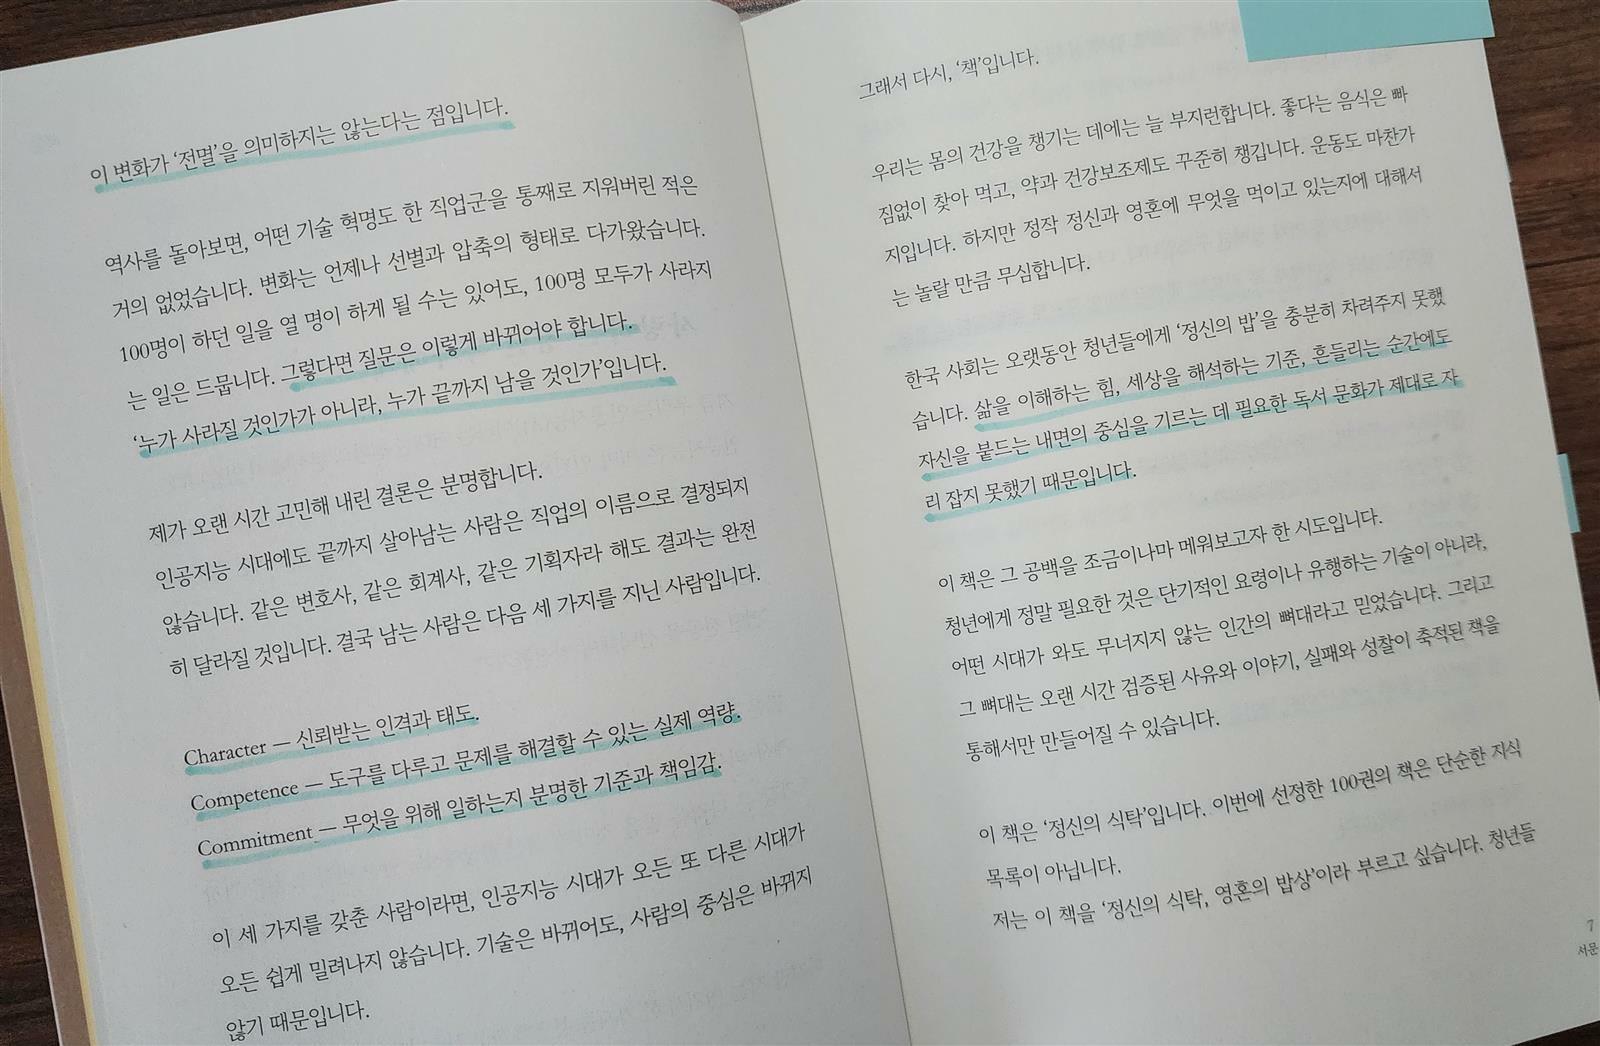 이 변화가 ‘전멸’을 의미하지는 않는다는 점입니다.
역사를 돌아보면, 어떤 기술 혁명도 한 직업군을 통째로 지워버린 적은
거의 없었습니다. 변화는 언제나 선별과 압축의 형태로 다가왔습니다.
100명이 하던 일을 열 명이 하게 될 수는 있어도, 100명 모두가 사라지
는 일은 드뭅니다. 그렇다면 질문은 이렇게 바뀌어야 합니다.
‘누가 사라질 것인가가 아니라, 누가 끝까지 남을 것인가’입니다.
제가 오랜 시간 고민해 내린 결론은 분명합니다.
인공지능 시대에도 끝까지 살아남는 사람은 직업의 이름으로 결정되지
않습니다. 같은 변호사, 같은 회계사, 같은 기획자라 해도 결과는 완전
히 달라질 것입니다. 결국 남는 사람은 다음 세 가지를 지닌 사람입니다.
Character — 신뢰받는 인격과 태도.
Competence — 도구를 다루고 문제를 해결할 수 있는 실제 역량.
Commitment — 무엇을 위해 일하는지 분명한 기준과 책임감.
이 세 가지를 갖춘 사람이라면, 인공지능 시대가 오든 또 다른 시대가
오든 쉽게 밀려나지 않습니다. 기술은 바뀌어도, 사람의 중심은 바뀌지
않기 때문입니다.
그래서 다시, ‘책’입니다.
우리는 몸의 건강을 챙기는 데에는 늘 부지런합니다. 좋다는 음식은 빠
짐없이 찾아 먹고, 약과 건강보조제도 꾸준히 챙깁니다. 운동도 마찬가
지입니다. 하지만 정작 정신과 영혼에 무엇을 먹이고 있는지에 대해서
는 놀랄 만큼 무심합니다.
한국 사회는 오랫동안 청년들에게 ‘정신의 밥’을 충분히 차려주지 못했
습니다. 삶을 이해하는 힘, 세상을 해석하는 기준, 흔들리는 순간에도
자신을 붙드는 내면의 중심을 기르는 데 필요한 독서 문화가 제대로 자
리 잡지 못했기 때문입니다.
이 책은 그 공백을 조금이나마 메워보고자 한 시도입니다.
청년에게 정말 필요한 것은 단기적인 요령이나 유행하는 기술이 아니라,
어떤 시대가 와도 무너지지 않는 인간의 뼈대라고 믿었습니다. 그리고
그 뼈대는 오랜 시간 검증된 사유와 이야기, 실패와 성찰이 축적된 책을
통해서만 만들어질 수 있습니다.
이 책은 ‘정신의 식탁’입니다. 이번에 선정한 100권의 책은 단순한 지식
목록이 아닙니다.
저는 이 책을 ‘정신의 식탁, 영혼의 밥상’이라 부르고 싶습니다. 청년들
7
서문